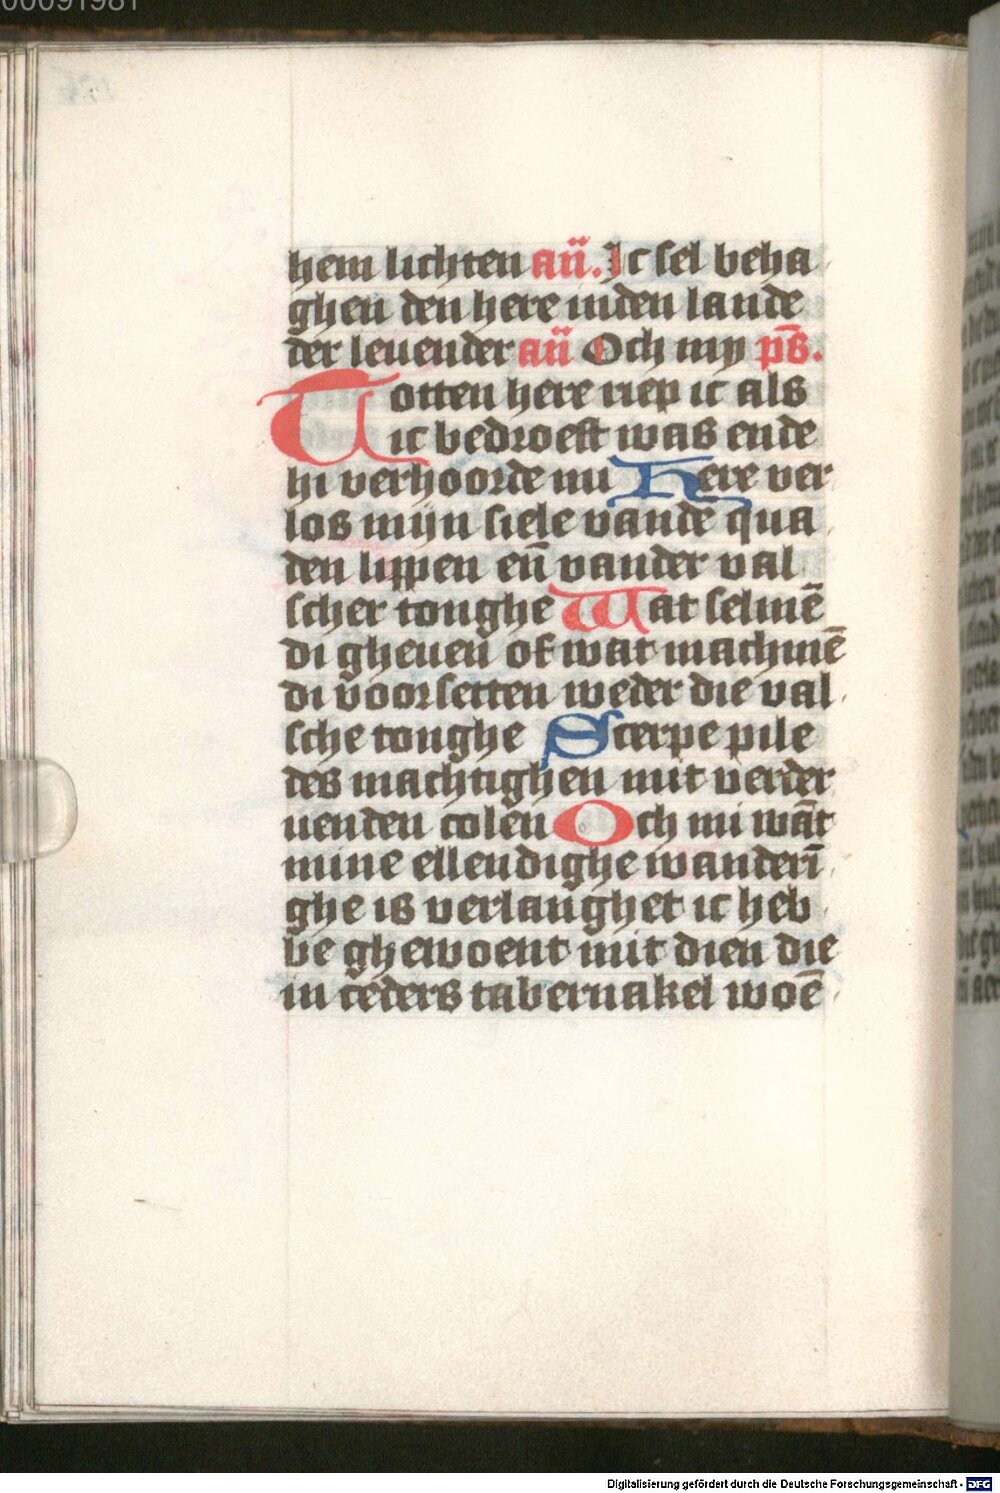 00091981
hem lichten an̄. Ic sel beha
ghen den here inden lande
der leuender an̄ Och my ps̄.
Totten here riep ic als
ic bedroeft was ende
hi verhoorde mi Here ver
los mijn siele vande qua
den lippen en̄ vander val
scher tonghe Wat selmē
di gheuen of wat machmē
di voorsetten weder die val
sche tonghe Scerpe pile
des machtighen mit verder
uenden colen Och mi wāt
mine ellendighe wanderī
ghe is verlanghet ic heb
be ghewoent mit dien die
in ceders tabernakel woē
Digitalisierung gefördert durch die Deutsche Forschungsgemeinschaft - DFG